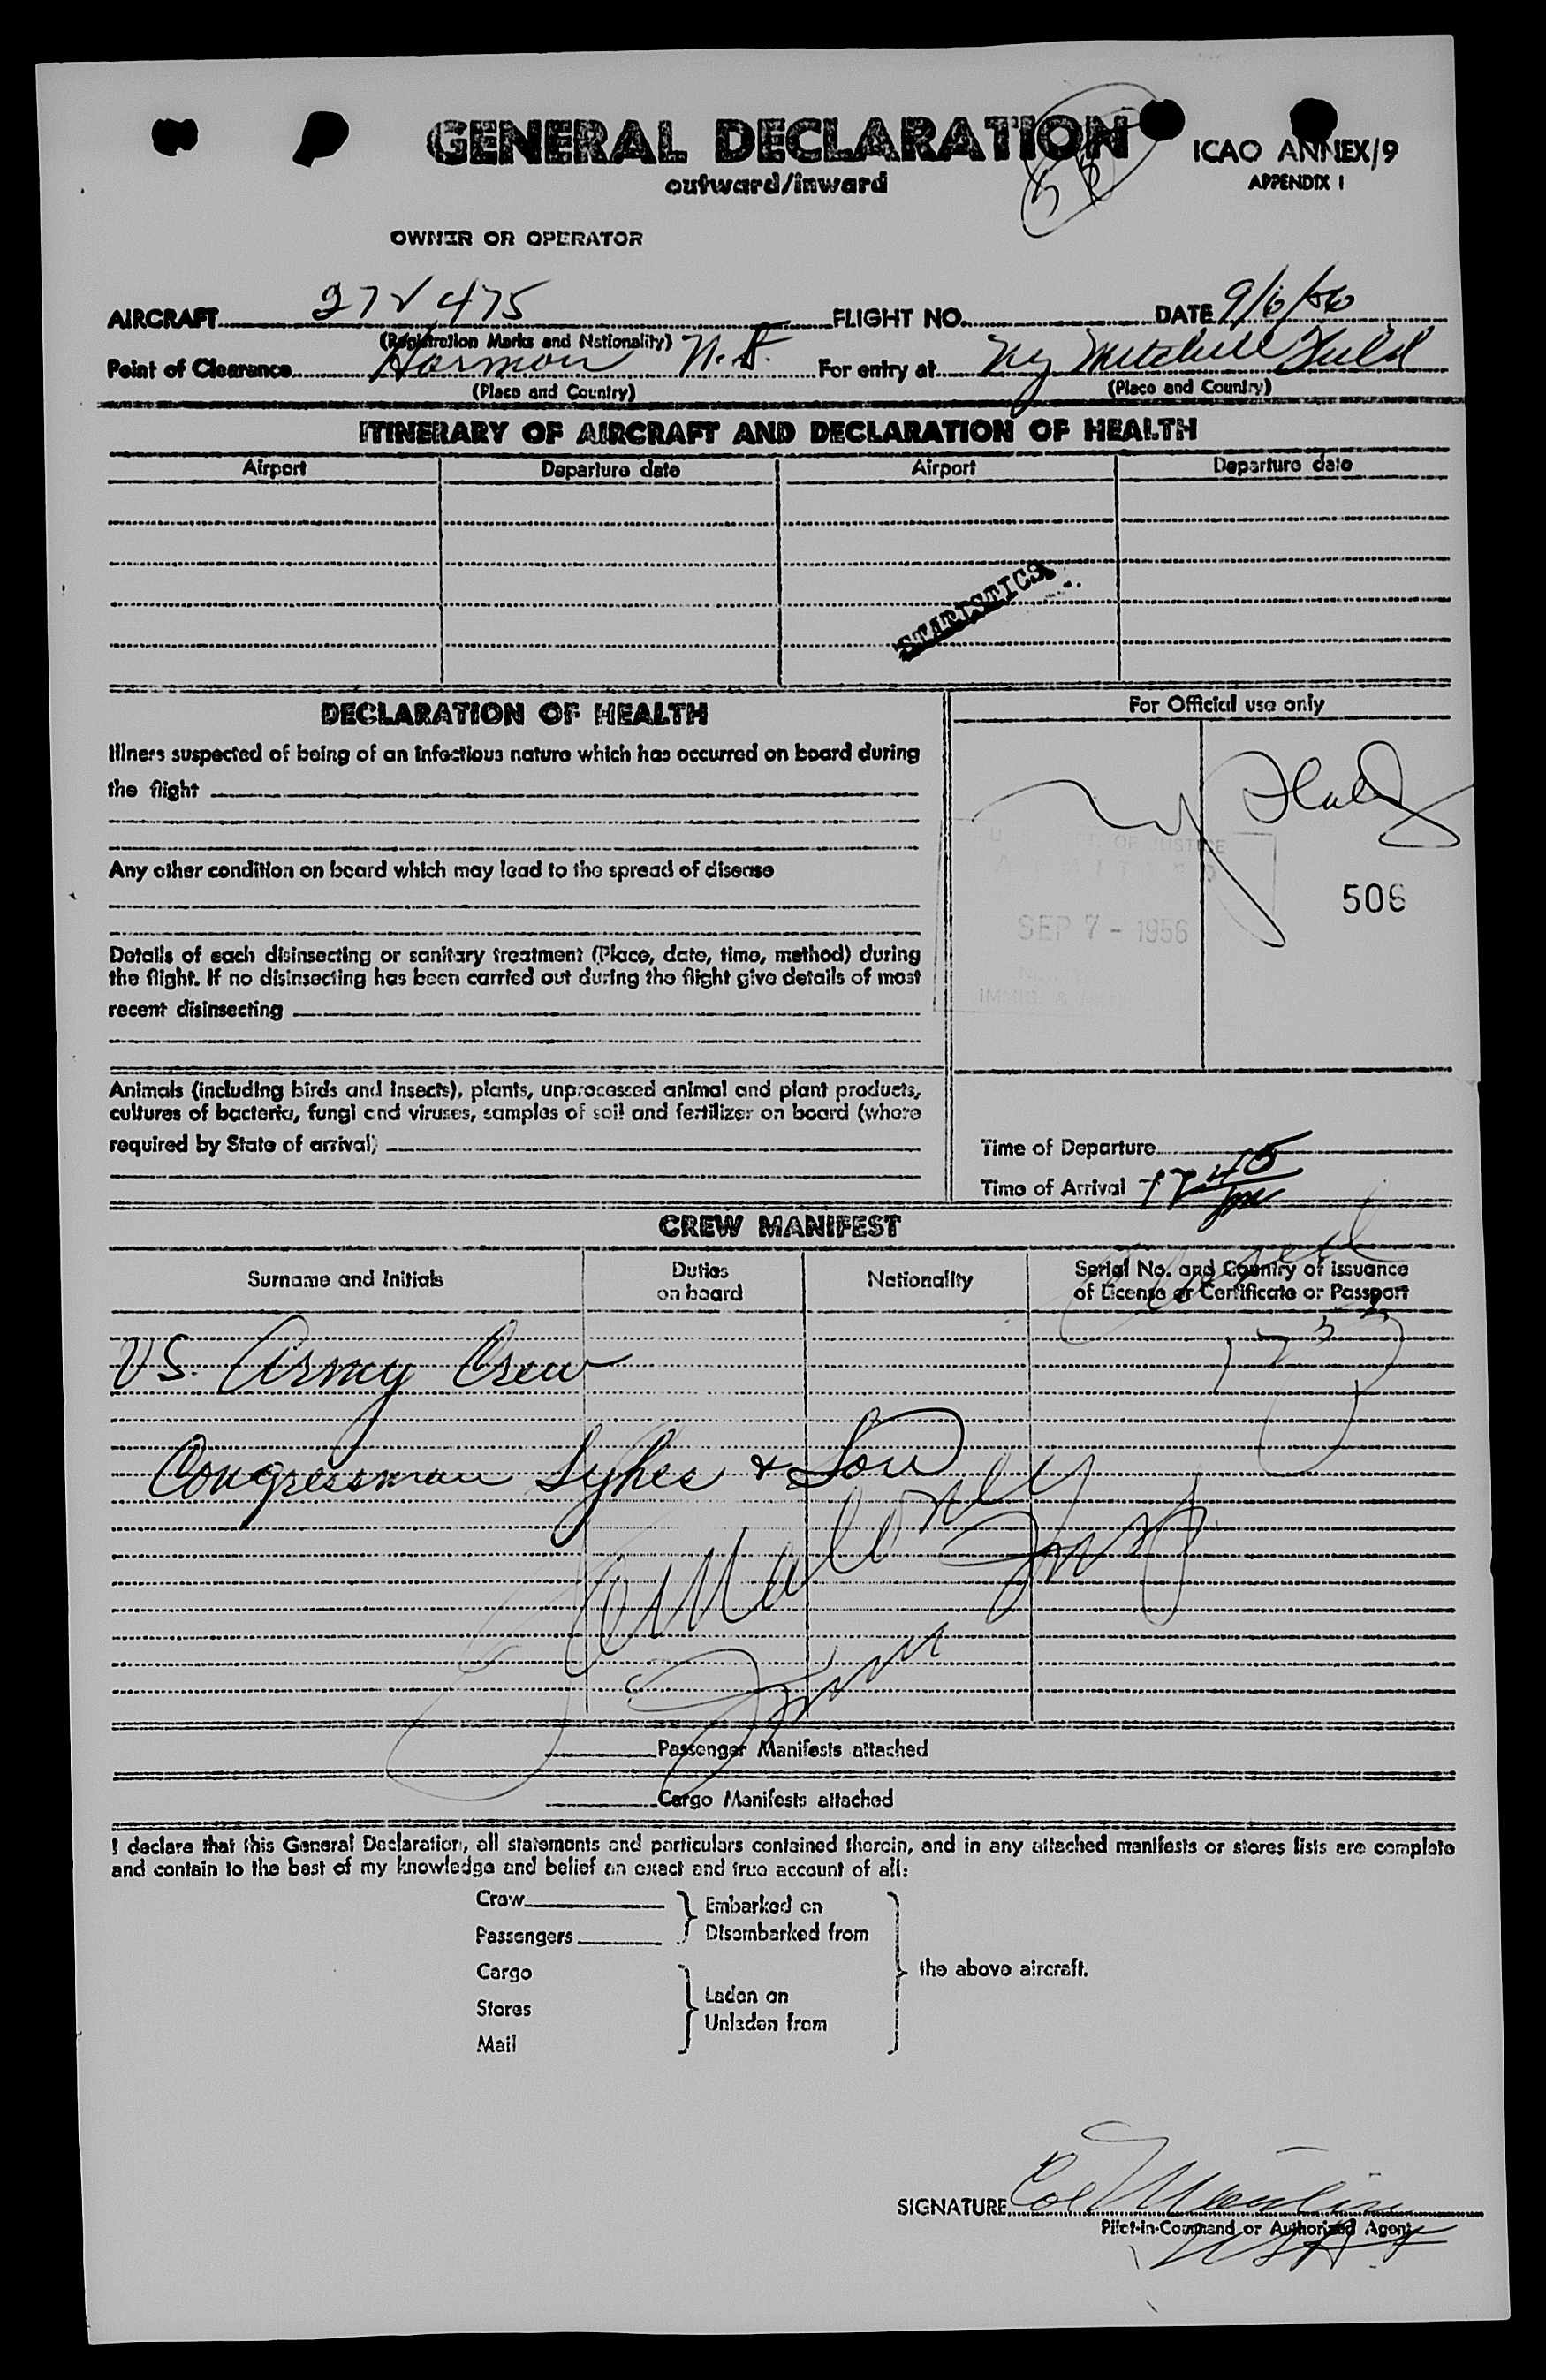 GENERAL DECLARATION
outward/inward
ICAO ANNEX/9
APPENDIX I
OWNER OR OPERATOR
AIRCRAFT 27 475 FLIGHT NO. DATE 9/6/56
(Registration Marks and Nationality)
Point of Clearance Harmon N.F. For entry at NY Mitchell Field
(Place and Country) (Place and Country)
ITINERARY OF AIRCRAFT AND DECLARATION OF HEALTH
Airport Departure date Airport Departure date
STATISTICS
DECLARATION OF HEALTH
Illness suspected of being of an infectious nature which has occurred on board during
the flight
Any other condition on board which may lead to the spread of disease
Details of each disinsecting or sanitary treatment (Place, date, time, method) during
the flight. If no disinsecting has been carried out during the flight give details of most
recent disinsecting
Animals (including birds and insects), plants, unprocessed animal and plant products,
cultures of bacteria, fungi and viruses, samples of soil and fertilizer on board (where
required by State of arrival)
For Official use only
OF JUSTICE
ADMITTED
SEP 7 - 1956
IMMIG. &
506
Time of Departure
Time of Arrival 12 45 pm
CREW MANIFEST
Surname and Initials Duties on board Nationality Serial No. and Country of issuance of License or Certificate or Passport
US. Army Crew
Congressman Sykes & Son
Passenger Manifests attached
Cargo Manifests attached
I declare that this General Declaration, all statements and particulars contained therein, and in any attached manifests or stores lists are complete
and contain to the best of my knowledge and belief an exact and true account of all:
Crew Embarked on
Passengers Disembarked from
Cargo the above aircraft.
Stores Laden on
Unladen from
Mail
SIGNATURE Col
Pilot-in-Command or Authorized Agent
USAF